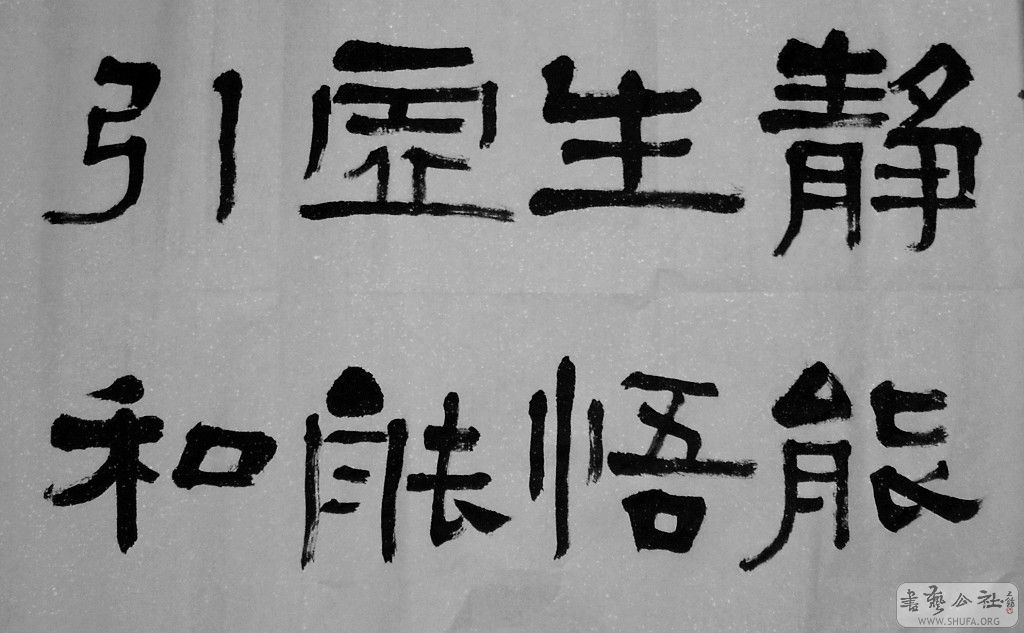 静能
生悟
虚能
引和
書藝公社
WWW.SHUFA.ORG